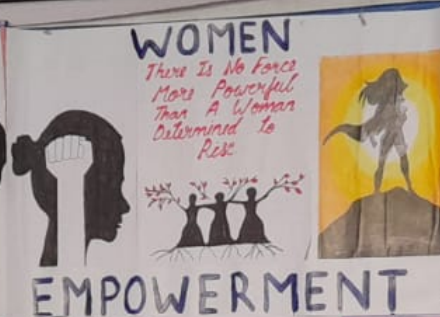 WOMEN
There Is No Force
More Powerful
Than A Woman
Determined to
Rise
EMPOWERMENT